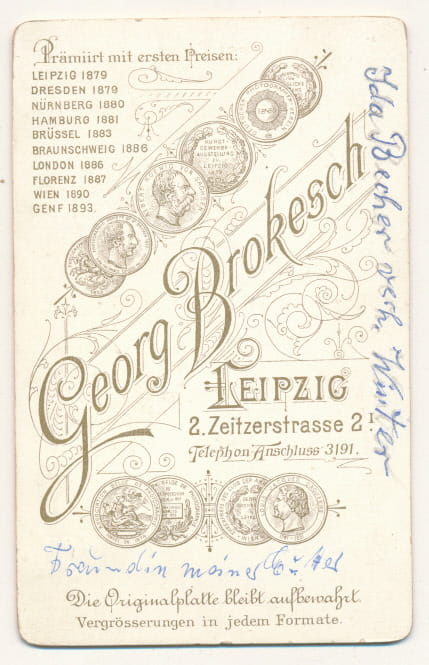 Prämiirt mit ersten Preisen:
LEIPZIG 1879
DRESDEN 1879
NÜRNBERG 1880
HAMBURG 1881
BRÜSSEL 1883
BRAUNSCHWEIG 1886
LONDON 1886
FLORENZ 1887
WIEN 1890
GENF 1893.
KUNST
GEWERBE
AUSSTELLUNG
ZU
LEIPZIG
1879
Georg Brokesch
LEIPZIG
2. Zeitzerstrasse 2 I.
Telephon Anschluss 3191.
Ida Becher verh. Winter
Freundin meiner
Die Originalplatte bleibt aufbewahrt.
Vergrösserungen in jedem Formate.